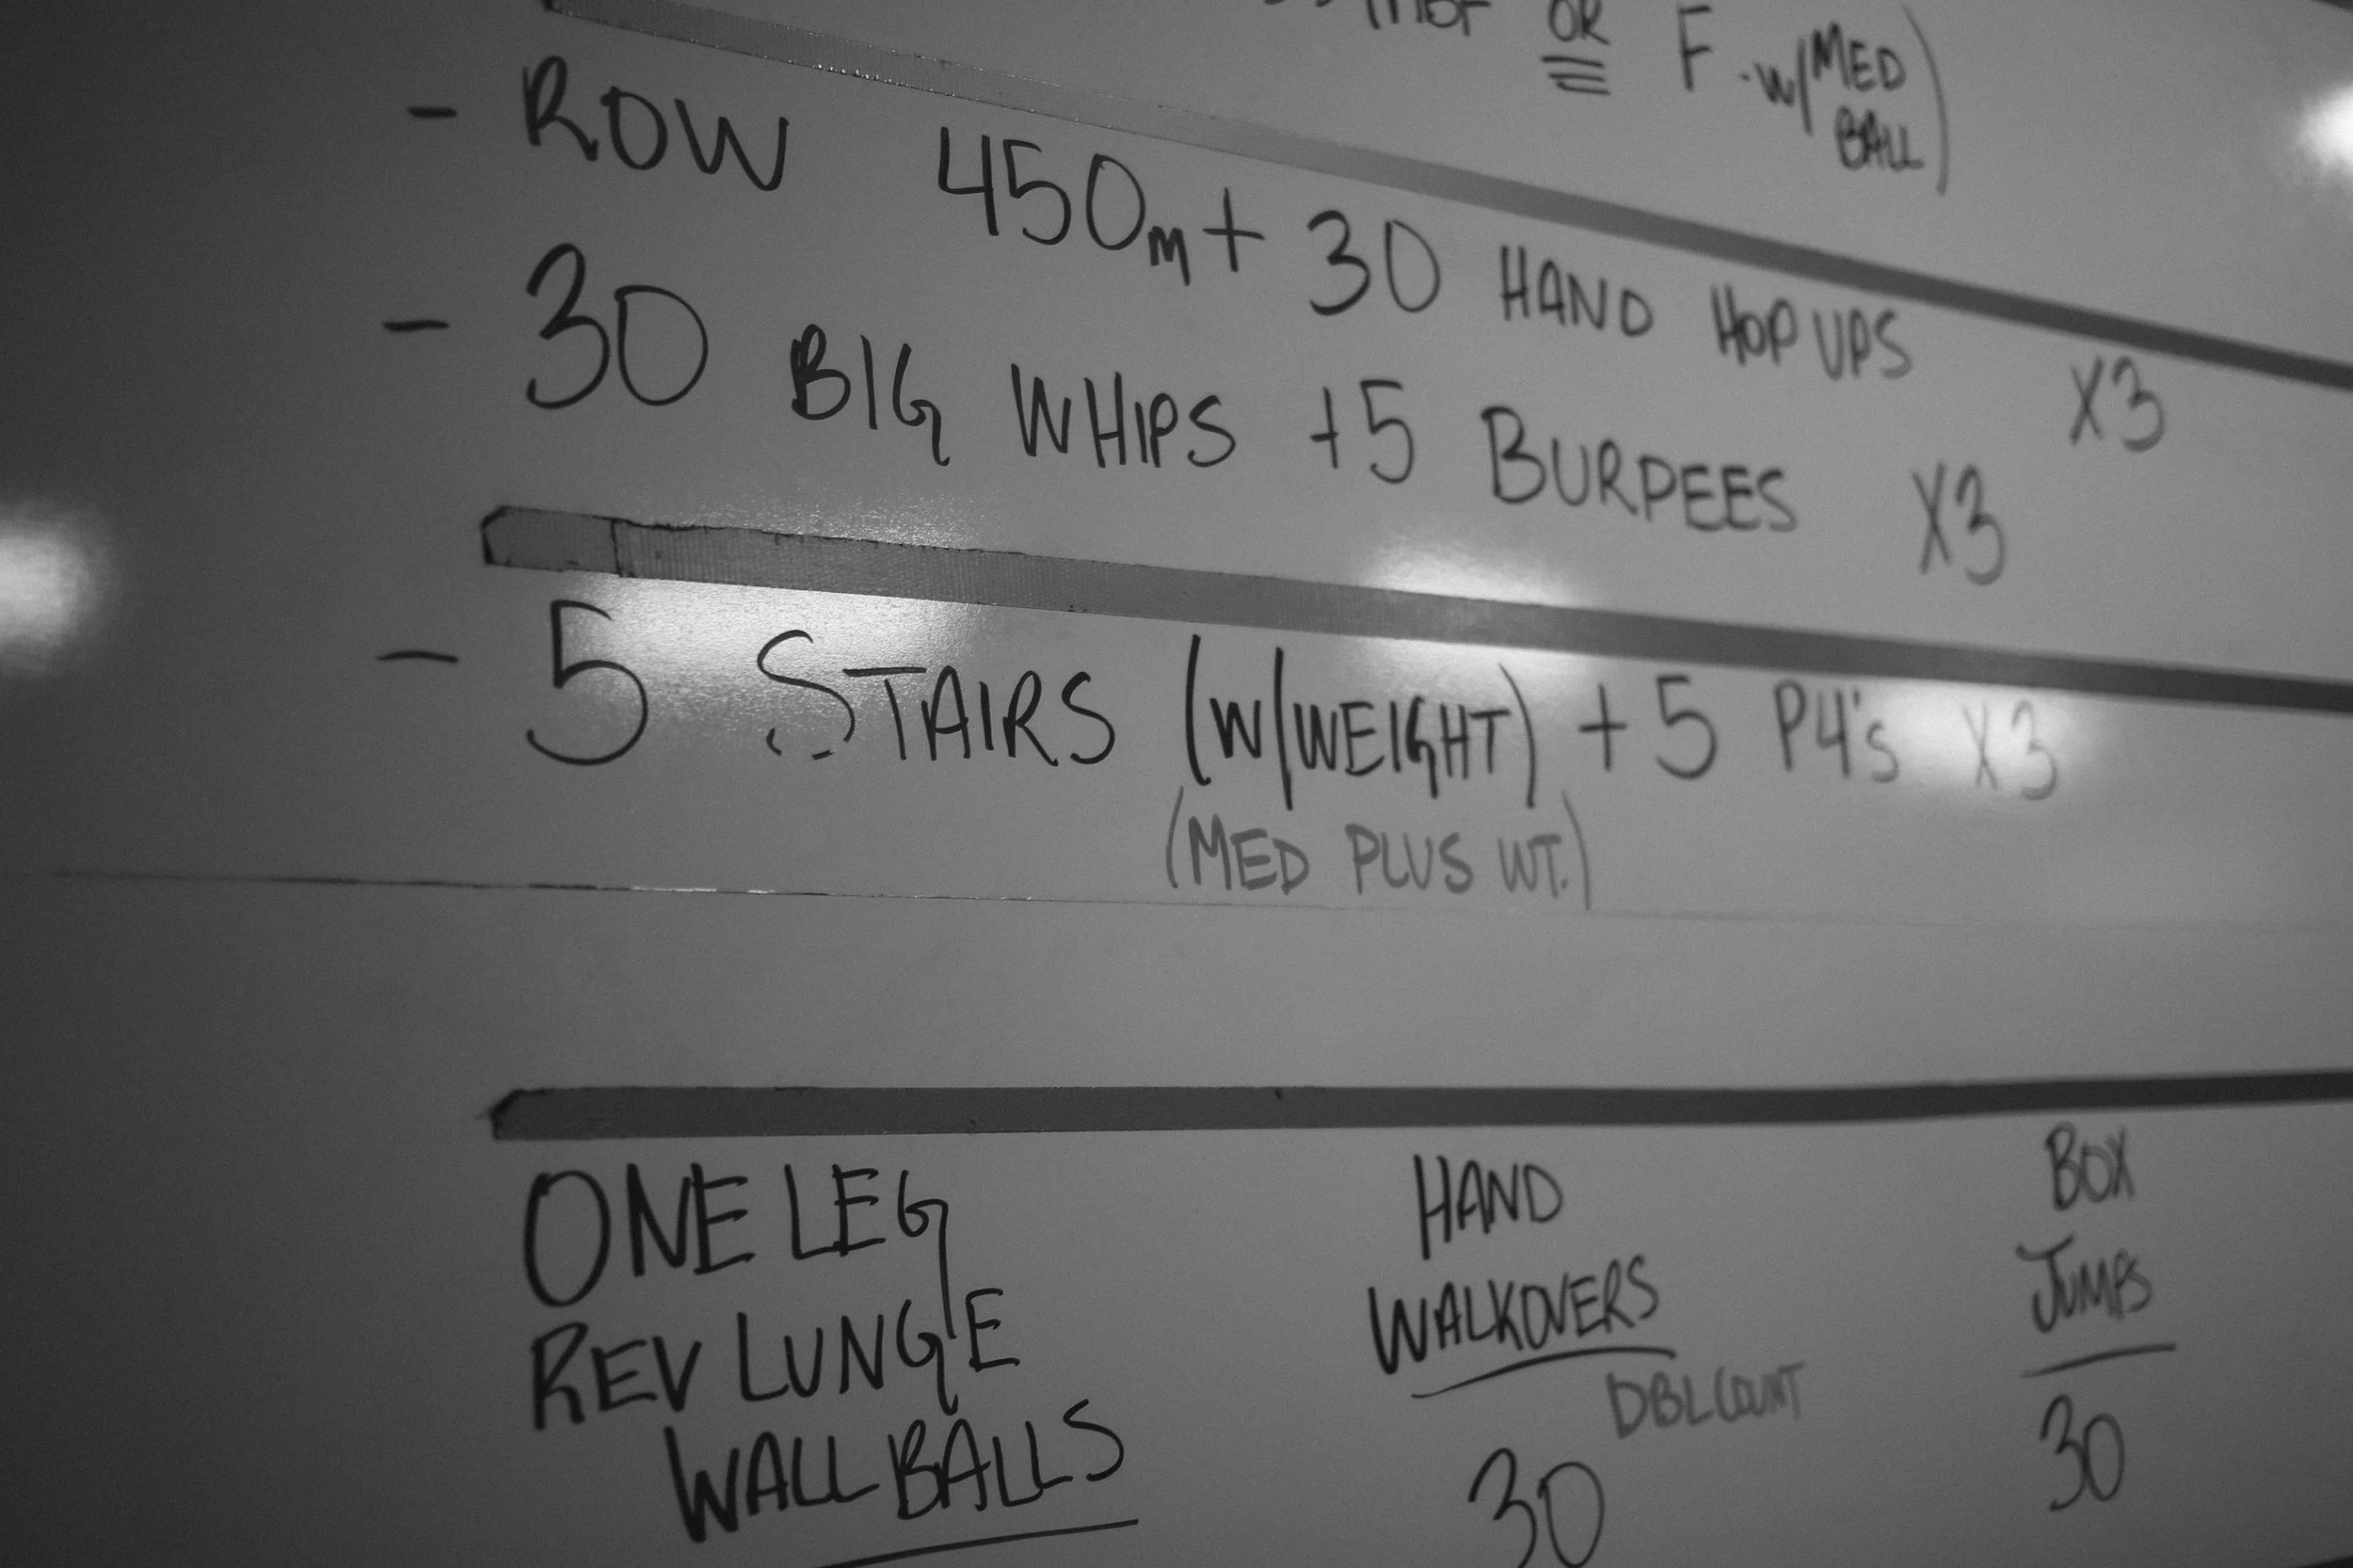 OR F w/MED
BALL)
- ROW 450m + 30 HAND HOP UPS X3
- 30 BIG WHIPS +5 BURPEES X3
- 5 STAIRS (W/WEIGHT) + 5 P4's X3
(MED PLUS WT.)
ONE LEG
REV LUNGE
WALL BALLS
HAND
WALKOVERS
DBL COUNT
30
BOX
JUMPS
30